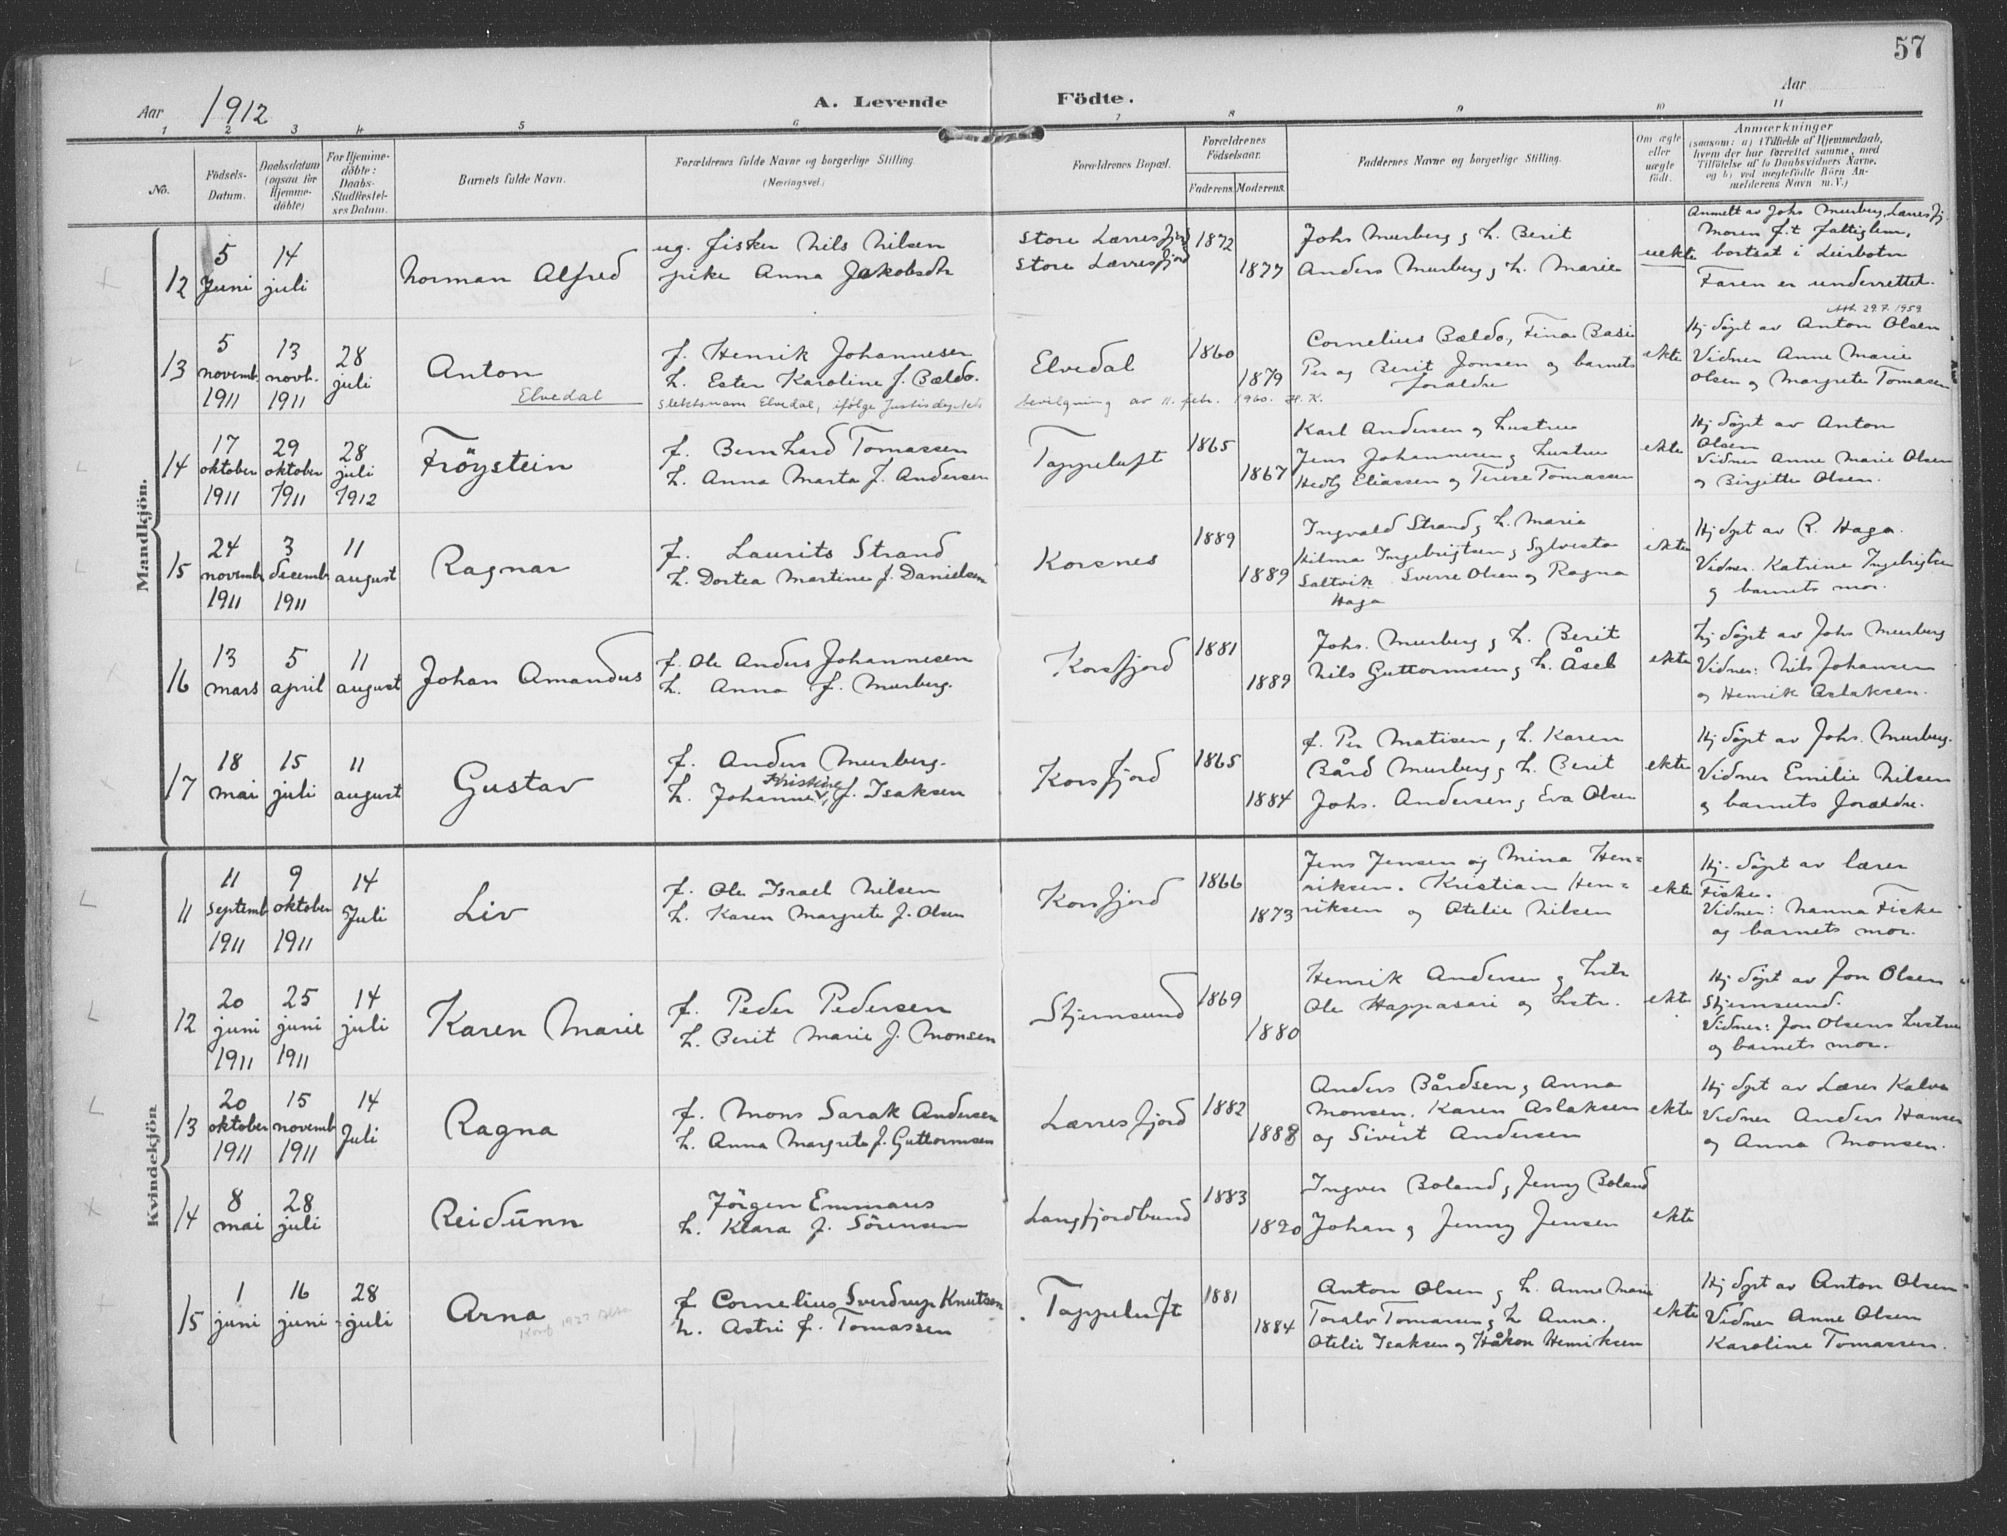 57
Aar 1912 A. Levende Födte. Aar
1 2 3 4 5 6 7 8 9 10 11
No.
Födsels-Datum.
Daabsdatum (ogsaa for Hjemme-döbte)
For Hjemme-döbte: Daabs-Stadfæstel-ses Datum.
Barnets fulde Navn.
Forældrenes fulde Navne og borgerlige Stilling.
(Næringsvei.)
Forældrenes Bopæl.
Forældrenes Födselsaar.
Faderens. Moderens.
Faddernes Navne og borgerlige Stilling.
Om ægte eller uægte födt.
Anmærkninger
(saasom: a) i Tilfælde af Hjemmedaab,
hvem der har forrettet samme, med
Tilföielse af to Daabsvidners Navne,
og b) ved uægtefödte Börn An-
melderens Navn m. V.)
Mandkjön.
12
5 Juni
14 juli
Norman Alfred
ug. fisker Nils Nilsen
pike Anna Jakobsdtr
Store Lærresfjord
Store Lærresfjord
1872
1877
Johs Murberg og h. Berit
Anders Murberg og h. Marie
uekte
Anmelt av Johs Murberg, Lærresfj.
Moren f.t. fattiglem,
bortsat i Leirbotn
Faren er underrettet.
13
5 novemb. 1911
13 novb. 1911
28 juli
Anton
Elvedal
f. Henrik Johannesen
h. Ester Karoline f. Bældo.
Slektsnavn Elvedal, ifölge Justisdep.tets bevilgning av 11. febr. 1960. H. K.
Elvedal
1860
1879
Cornelius Bældo, Fina Basi
Per og Berit Jonsen og barnets
foreldre
ekte
Att. 29.7.1959
Hj döpt av Anton Olsen
Vidner Anne Marie
Olsen og Margrete Tomasen
14
17 oktober 1911
29 oktober 1911
28 juli 1912
Fröystein
f. Bernhard Tomassen
h. Anna Marta f. Andersen
Tappeluft
1865
1867
Karl Andersen og hustru
Jens Johannesen og hustru
Hedly Eliassen og Terese Tomassen
ekte
Hj döpt av Anton
Olsen
Vidner Anne Marie Olsen
og Birgitte Olsen.
15
24 novemb 1911
3 decemb 1911
11 august
Ragnar
f. Laurits Strand
h. Dortea Martine f. Danielsen
Korsnes
1889
1889
Ingvald Strand og h. Maria
Hilma Ingebrigtsen og Sylvester
Saltvik. Sverre Olsen og Ragna
Haga
ekte
Hj döpt av R. Haga.
Vidner. Katrine Ingebrigtsen
og barnets mor.
16
13 mars
5 april
11 august
Johan Amandus
f. Ole Anders Johannesen
h. Anna f. Murberg.
Korsfjord
1881
1889
Johs. Murberg og h. Berit
Nils Guttormsen og h. Åsel
ekte
Hj döpt av Johs Murberg
Vidner: Nils Johansen
og Henrik Aslaksen.
17
18 mai
15 juli
11 august
Gustav
f. Anders Murberg.
Kristine
h. Johanne v, f. Isaksen
Korsfjord
1865
1884
f. Per Matisen og h. Karen
Bård Murberg og h. Berit
Johs. Andersen og Eva Olsen
ekte
Hj döpt av Johs. Murberg.
Vidner Emilie Nilsen
og barnets forældre.
Kvindekjön
11
11 septemb 1911
9 oktober 1911
14 Juli
Liv
f. Ole Israel Nilsen
h. Karen Margrete f. Olsen
Korsfjord
1866
1873
Jens Jensen og Mina Hen=
riksen. Kristian Hen=
riksen og Otelie Nilsen
ekte
Hj. döpt av lærer
Fiske.
Vidner: Nanna Fiske
og barnets mor.
12
20 juni 1911
25 juni 1911
14 juli
Karen Marie
f. Peder Pedersen
h. Berit Marie f. Monsen
Stjernsund
1869
1880
Henrik Andersen og hstr
Ole Happasari og hstr.
ekte
Hj döpt av Jon Olsen
Stjernsund.
Vidner: Jon Olsens hustru
og barnets mor.
13
20 oktober 1911
15 novemb 1911
14 Juli
Ragna
f. Mons Sarak Andersen
h. Anna Margrete f. Guttormsen
Lærresfjord
1882
1888
Anders Bårdsen og Anna
Monsen. Karen Aslaksen
og Sivert Andersen
ekte
Hj döpt av Lærer Kalve
Vidner Anders Hansen
og Anna Monsen.
14
8 mai
28 juli
Reidunn
Jörgen Emmaus
h. Klara f. Sörensen
Langfjordbund
1883
1890
Ingver Boland og Jenny Boland
Johan og Jenny Jensen
ekte
15
1 juni
16 juni
28 juli
Arna
Konf 1927
f. Cornelius Sverdrup Knutsen
h. Astri f. Tomassen
Tappeluft
1881
1884
Anton Olsen og h. Anne Marie
Toralv Tomassen og h Anna.
Otelie Isaksen og Håkon Henriksen
ekte
Hj döpt av Anton Olsen
Vidner Anne Olsen
Karoline Tomassen.